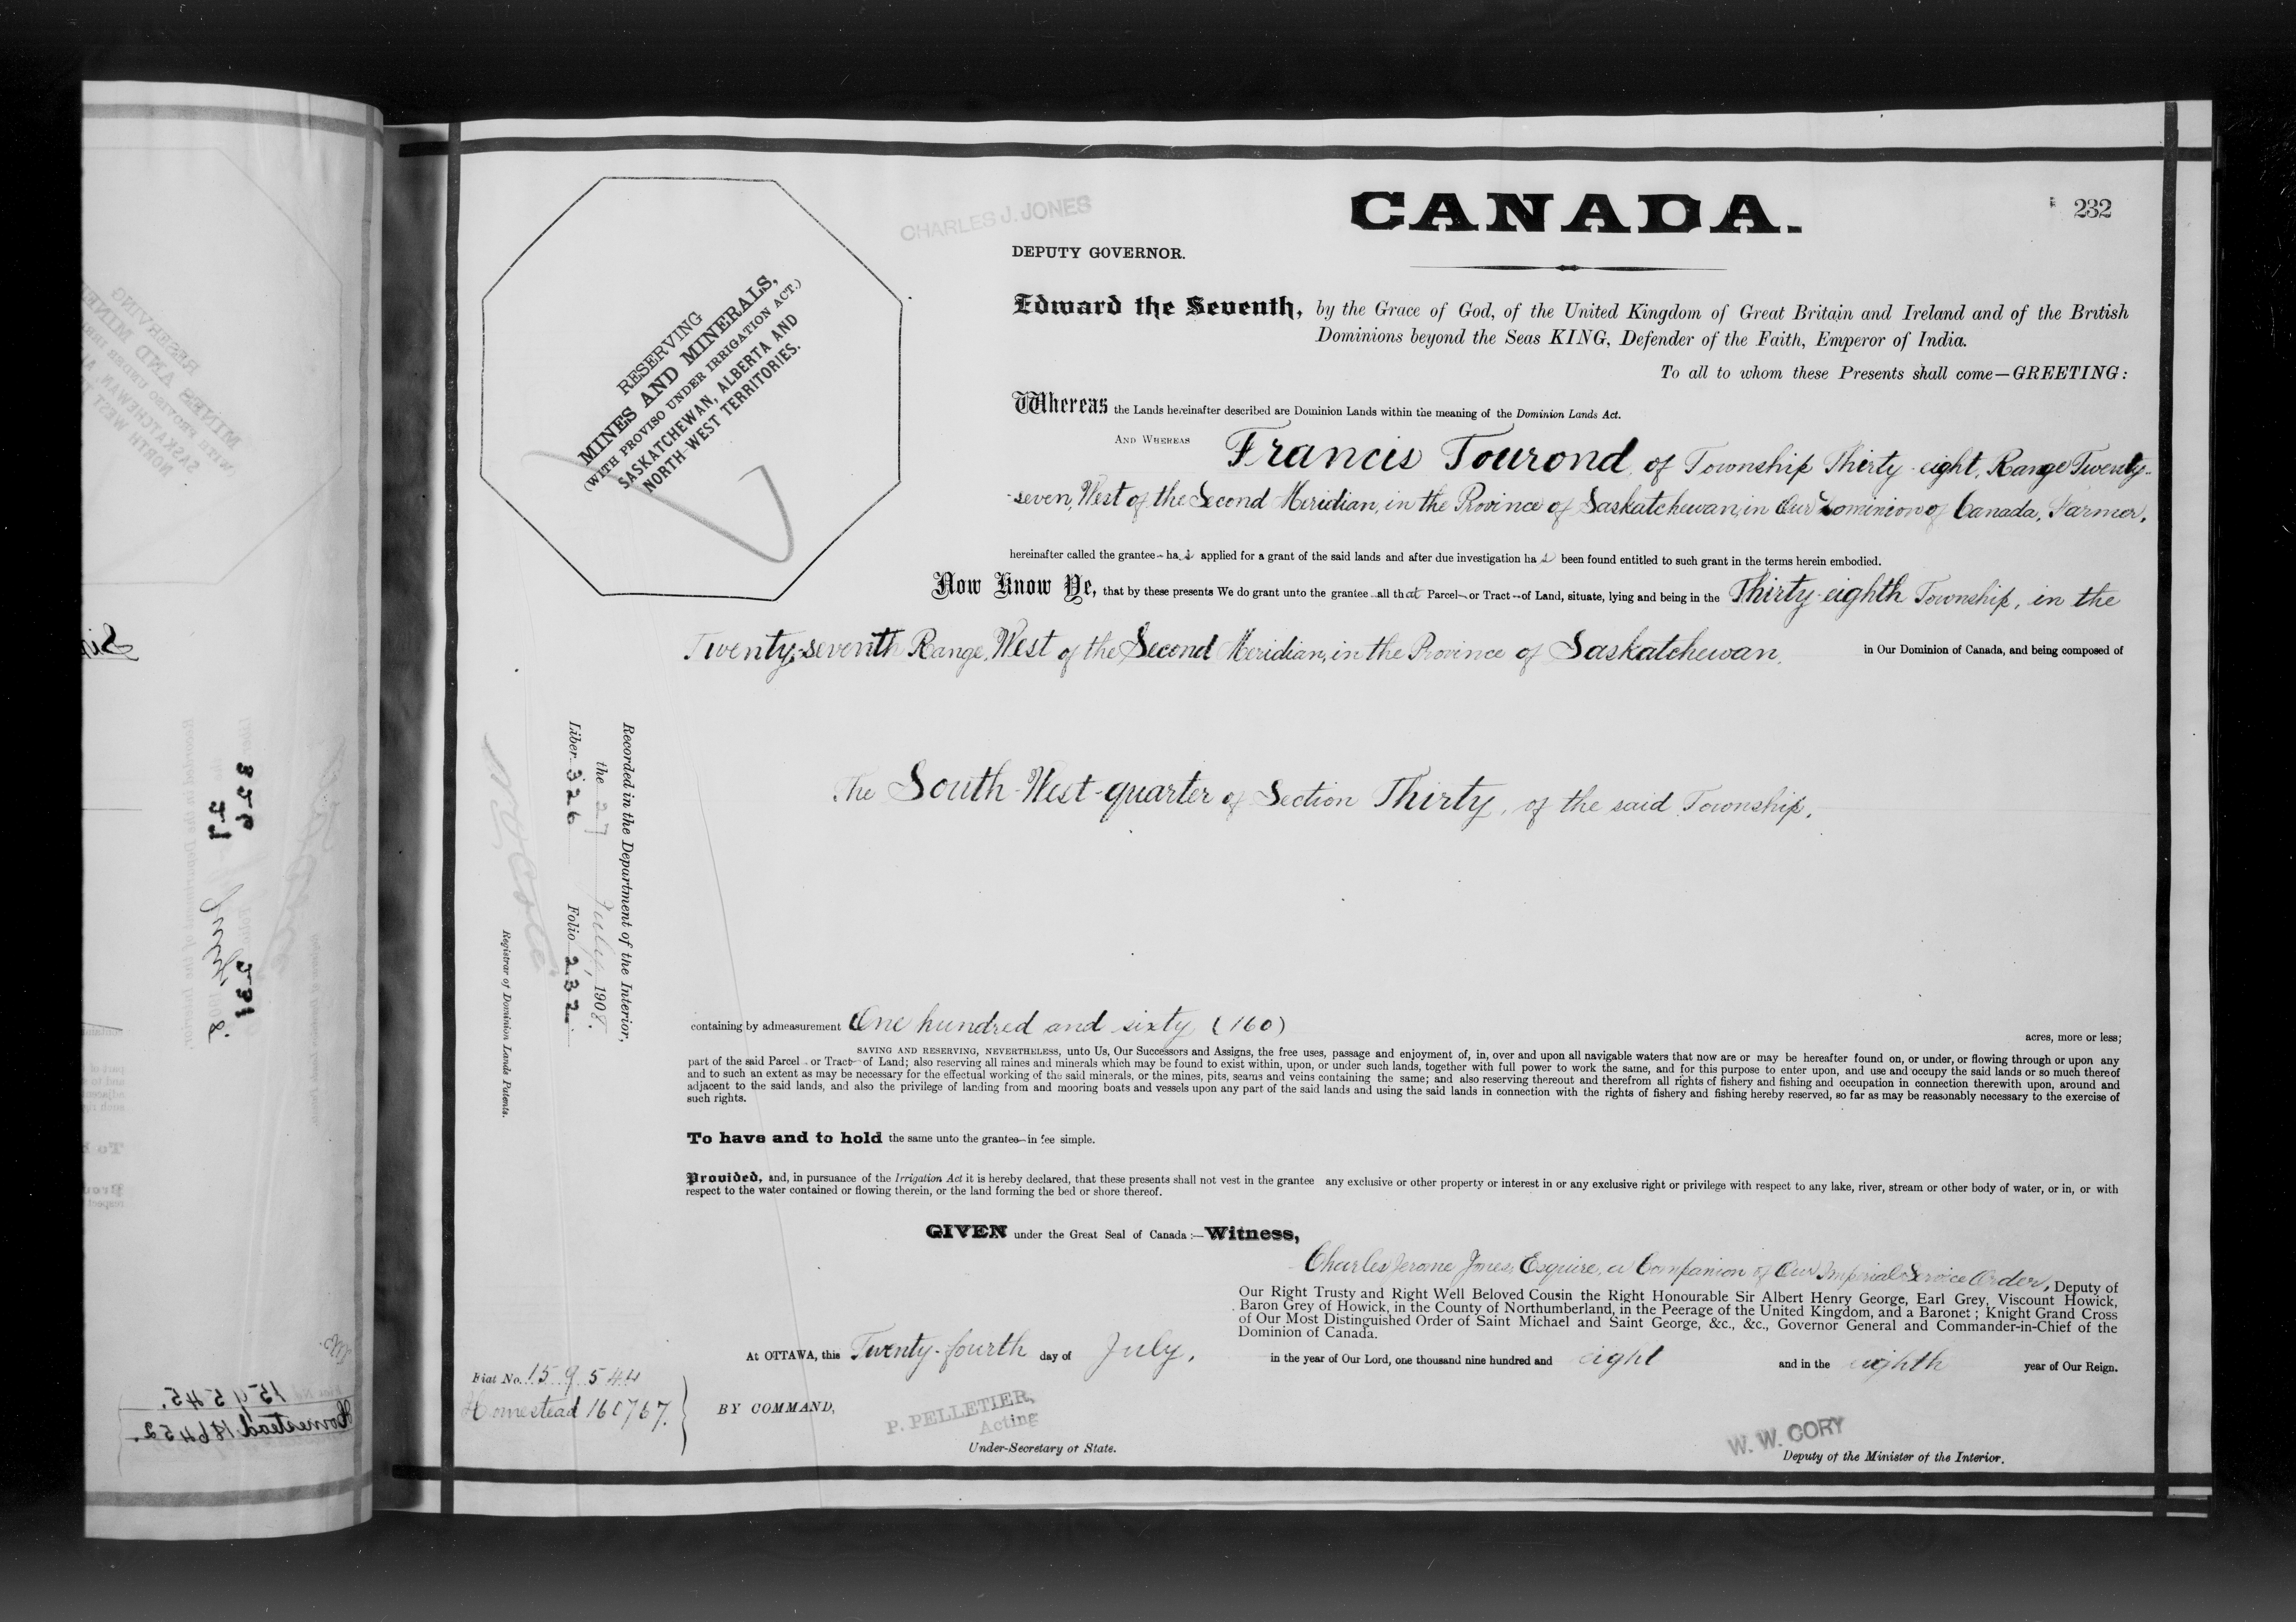 CANADA.
232
CHARLES J. JONES
DEPUTY GOVERNOR.
RESERVING
MINES AND MINERALS,
(WITH PROVISO UNDER IRRIGATION ACT.)
SASKATCHEWAN, ALBERTA AND
NORTH-WEST TERRITORIES.
Edward the Seventh, by the Grace of God, of the United Kingdom of Great Britain and Ireland and of the British
Dominions beyond the Seas KING, Defender of the Faith, Emperor of India.
To all to whom these Presents shall come—GREETING:
Whereas the Lands hereinafter described are Dominion Lands within the meaning of the Dominion Lands Act.
AND WHEREAS Francis Tourond, of Township Thirty-eight, Range Twenty-
-seven, West of the Second Meridian, in the Province of Saskatchewan, in Our Dominion of Canada, Farmer,
hereinafter called the grantee has applied for a grant of the said lands and after due investigation has been found entitled to such grant in the terms herein embodied.
Now Know Ye, that by these presents We do grant unto the grantee all that Parcel or Tract of Land, situate, lying and being in the Thirty-eighth Township, in the
Twenty-seventh Range, West of the Second Meridian, in the Province of Saskatchewan, in Our Dominion of Canada, and being composed of
The South-West-quarter of Section Thirty, of the said Township,
Recorded in the Department of the Interior,
the 27 July, 1908.
Liber 326 Folio 232.
Registrar of Dominion Lands Patents.
containing by admeasurement One hundred and sixty (160) acres, more or less;
SAVING AND RESERVING, NEVERTHELESS, unto Us, Our Successors and Assigns, the free uses, passage and enjoyment of, in, over and upon all navigable waters that now are or may be hereafter found on, or under, or flowing through or upon any
part of the said Parcel or Tract of Land; also reserving all mines and minerals which may be found to exist within, upon, or under such lands, together with full power to work the same, and for this purpose to enter upon, and use and occupy the said lands or so much thereof
and to such an extent as may be necessary for the effectual working of the said minerals, or the mines, pits, seams and veins containing the same; and also reserving thereout and therefrom all rights of fishery and fishing and occupation in connection therewith upon, around and
adjacent to the said lands, and also the privilege of landing from and mooring boats and vessels upon any part of the said lands and using the said lands in connection with the rights of fishery and fishing hereby reserved, so far as may be reasonably necessary to the exercise of
such rights.
To have and to hold the same unto the grantee in fee simple.
Provided, and, in pursuance of the Irrigation Act it is hereby declared, that these presents shall not vest in the grantee any exclusive or other property or interest in or any exclusive right or privilege with respect to any lake, river, stream or other body of water, or in, or with
respect to the water contained or flowing therein, or the land forming the bed or shore thereof.
GIVEN under the Great Seal of Canada:—Witness,
Charles Jerome Jones, Esquire, a Companion of Our Imperial Service Order, Deputy of
Our Right Trusty and Right Well Beloved Cousin the Right Honourable Sir Albert Henry George, Earl Grey, Viscount Howick,
Baron Grey of Howick, in the County of Northumberland, in the Peerage of the United Kingdom, and a Baronet; Knight Grand Cross
of Our Most Distinguished Order of Saint Michael and Saint George, &c., &c., Governor General and Commander-in-Chief of the
Dominion of Canada.
At OTTAWA, this Twenty-fourth day of July, in the year of Our Lord, one thousand nine hundred and eight and in the eighth year of Our Reign.
Fiat No. 159544
Homestead 160767.
BY COMMAND,
P. PELLETIER,
Acting
Under-Secretary of State.
W. W. CORY
Deputy of the Minister of the Interior.